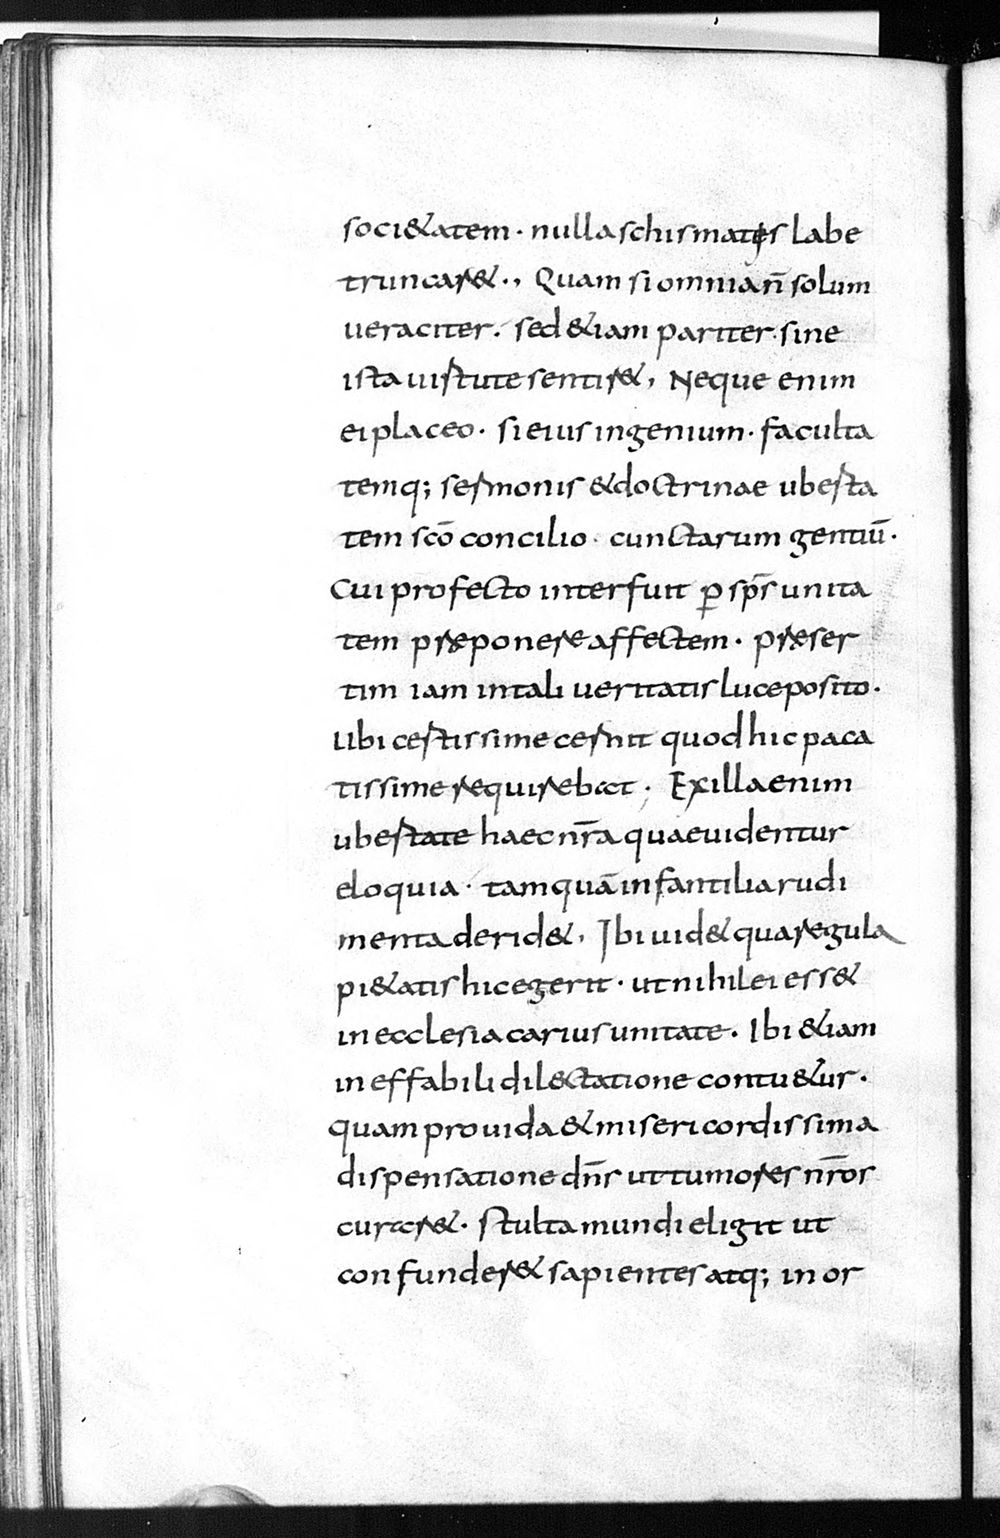 soci&atem · nulla schismatis labe
truncar&., Quam si omnia n̄ solum
ueraciter. sed &iam pariter · sine
ista uirtute sentir&, Neque enim
ei placeo · si eius ingenium · faculta
temq; sermonis & doctrinae uberta
tem sc̄o concilio · cunctarum gentiū ·
Cui profecto interfuit ꝑ sp̄s unita
tem praeponere affectem · praeser
tim iam in tali ueritatis luce posito ·
Ubi certissime cernit quod hic paca
tissime requirebat ; Ex illa enim
ubertate haec nr̄a quae uidentur
eloquia · tamquā infantilia rudi
menta derid&, Ibi uid& qua regula
pi&atis hic egerit · ut nihil ei ess&
in ecclesia carius unitate · Ibi &iam
ineffabili dil&ctatione contu&ur ·
quam prouida & misericordissima
dispensatione dn̄s ut tumores nr̄os
curar& · stulta mundi eligit ut
confunder& sapientes atq; in or